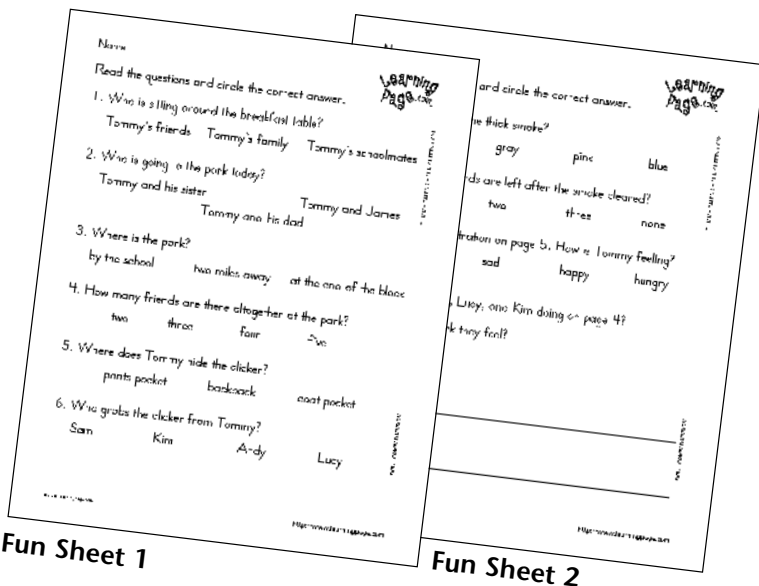 Name
Learning
Page.com
Read the questions and circle the correct answer.
1. Who is sitting around the breakfast table?
Tommy's friends Tommy's family Tommy's schoolmates
2. Who is going to the park today?
Tommy and his sister
Tommy and his dad
Tommy and James
3. Where is the park?
by the school two miles away at the end of the block
4. How many friends are there altogether at the park?
two three four five
5. Where does Tommy hide the clicker?
pants pocket backpack coat pocket
6. Who grabs the clicker from Tommy?
Sam Kim Andy Lucy
http://www.learningpage.com
Fun Sheet 1
Learning
Page.com
and circle the correct answer.
thick smoke?
gray pink blue
are left after the smoke cleared?
two three none
on page 5. How is Tommy feeling?
sad happy hungry
Lucy, and Kim doing on page 4?
they feel?
http://www.learningpage.com
Fun Sheet 2